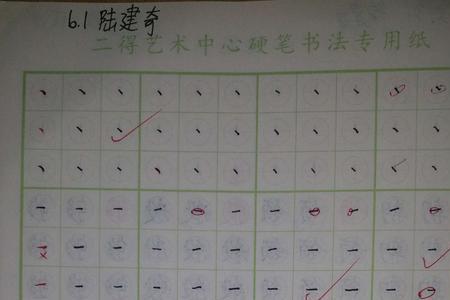 6.1 陆建奇
二得艺术中心硬笔书法专用纸